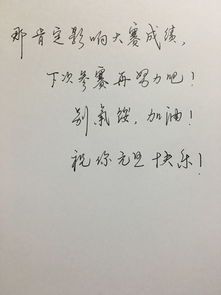 那肯定影响大赛成绩，
下次参赛再努力吧！
别气馁，加油！
祝你元旦快乐！